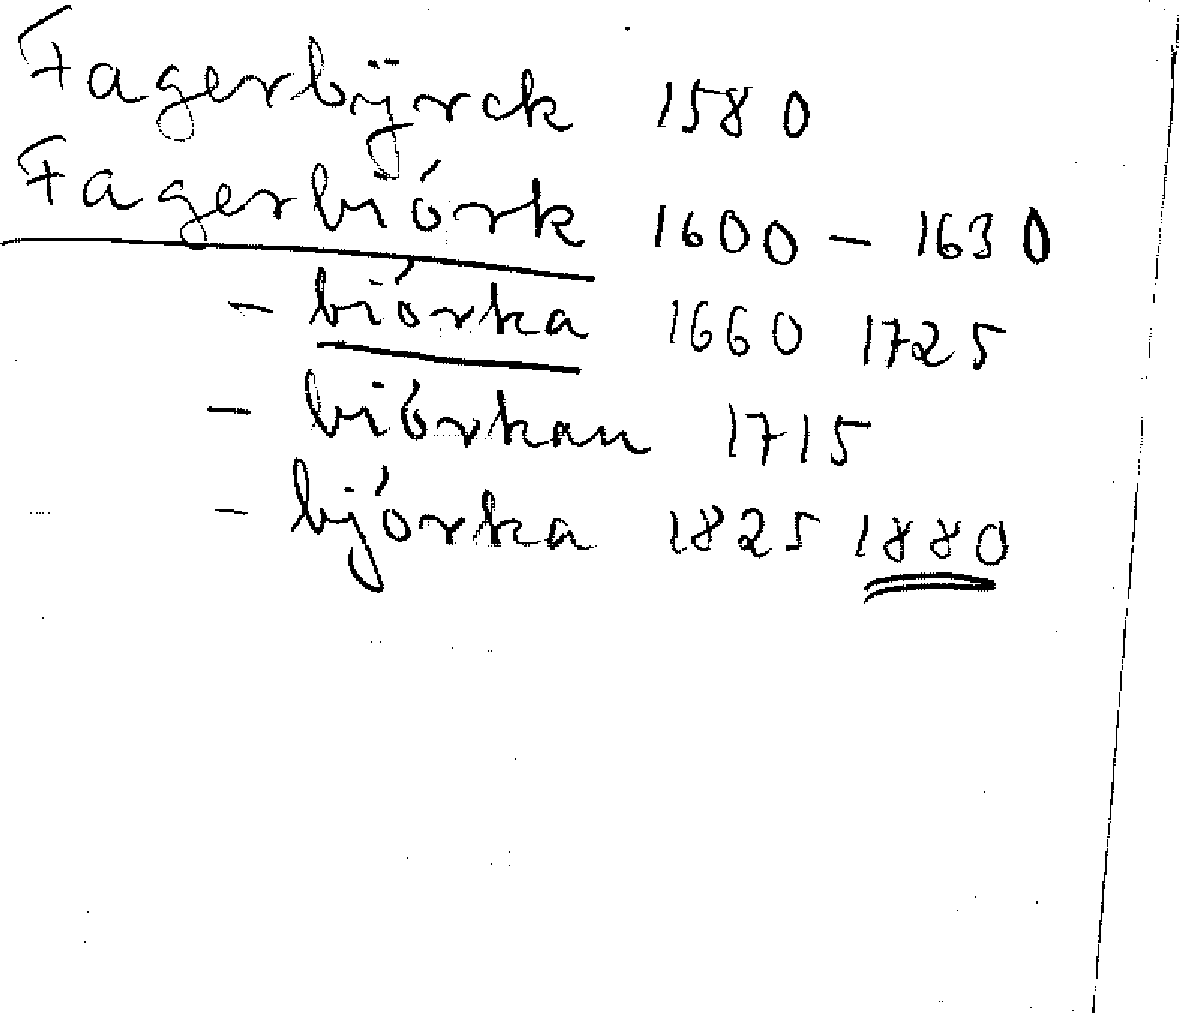 Fagerbÿrck 1580
Fagerbiórk 1600 – 1630
– biórka 1660 1725
– biórkan 1715
– bjórka 1825 1880